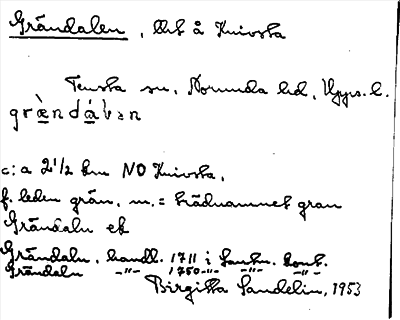 Grändalen, lht å Knivsta
Tensta sn, Norunda hd, Upps. l.
græ̀ndáɫən
c:a 2 1/2 km NO Knivsta.
f. leden grän, m. = trädnamnet gran
Grändaln ek
Grändaln, handl. 1711 i Lantm. kont.
Grändaln -"- 1750 -"- -"- -"-
Birgitta Sandelin, 1953